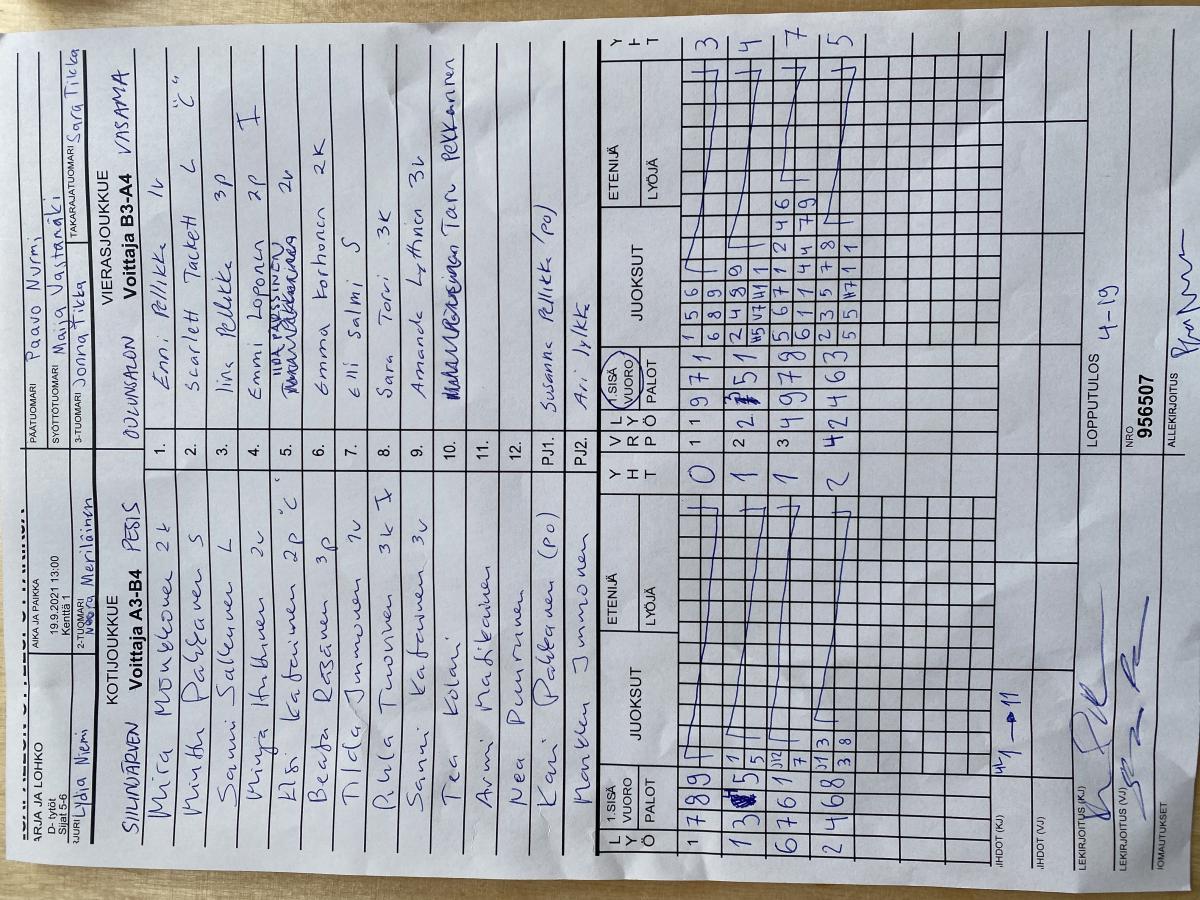 ARJA JA LOHKO
D- tytöt
Sijat 5-6
AIKA JA PAIKKA
19.9.2021 13:00
Kenttä 1
PÄÄTUOMARI Paavo Nurmi
SYÖTTÖTUOMARI Maija Vastamäki
Lydia Niemi
2-TUOMARI Noora Meriläinen
3-TUOMARI Jonna Tikka
TAKARAJATUOMARI Sara Tikka
KOTIJOUKKUE
Voittaja A3-B4
SIILINJÄRVEN PESIS
VIERASJOUKKUE
Voittaja B3-A4
OULUNSALON VASAMA
Mira Mönkkönen 2k 1. Enni Pellikka 1v
Minttu Pakkanen S 2. Scarlett Tackett L "C"
Sanni Salkanen L 3. Iina Pellikka 3p
Minja Huttunen 2v 4. Emmi Loponen 2p I
Elsi Katainen 2p "C" 5. 2v
Beata Räsänen 3p 6. Emma Korhonen 2k
Tilda Immonen 1v 7. Elli Salmi S
Pihla Turovinen 3k I 8. Sara Torvi 3k
Sanni Katainen 3v 9. Amanda Lyttinen 3v
Tea Kolari 10. Pekkarinen
Armi Matikainen 11.
Nea Puurunen 12.
Kari Pakkanen (po) PJ1. Susanna Pellikka (po)
Markku Immonen PJ2. Ari Jylkkä
LYÖ 1.SISÄ VUORO PALOT JUOKSUT ETENIJÄ LYÖJÄ YHT VRP LYÖ 1.SISÄ VUORO PALOT JUOKSUT ETENIJÄ LYÖJÄ YHT
1 7 8 9 0 1 1 9 7 1 1 5 6 3
6 8 9
1 3 5 1 1 1 2 2 5 1 2 4 8 9 4
5 H5 V7 H1 1
6 7 6 1 J12 1 3 4 9 7 8 5 6 7 1 2 4 6 7
7 6 1 1 4 4 7 9
2 4 6 8 J1 3 2 4 2 4 6 3 2 3 5 7 8 5
3 8 5 5 H7 1 1
IHDOT (KJ)
IHDOT (VJ)
LEKIRJOITUS (KJ)
LOPPUTULOS 4-19
LEKIRJOITUS (VJ)
NRO
956507
IOMAUTUKSET
ALLEKIRJOITUS